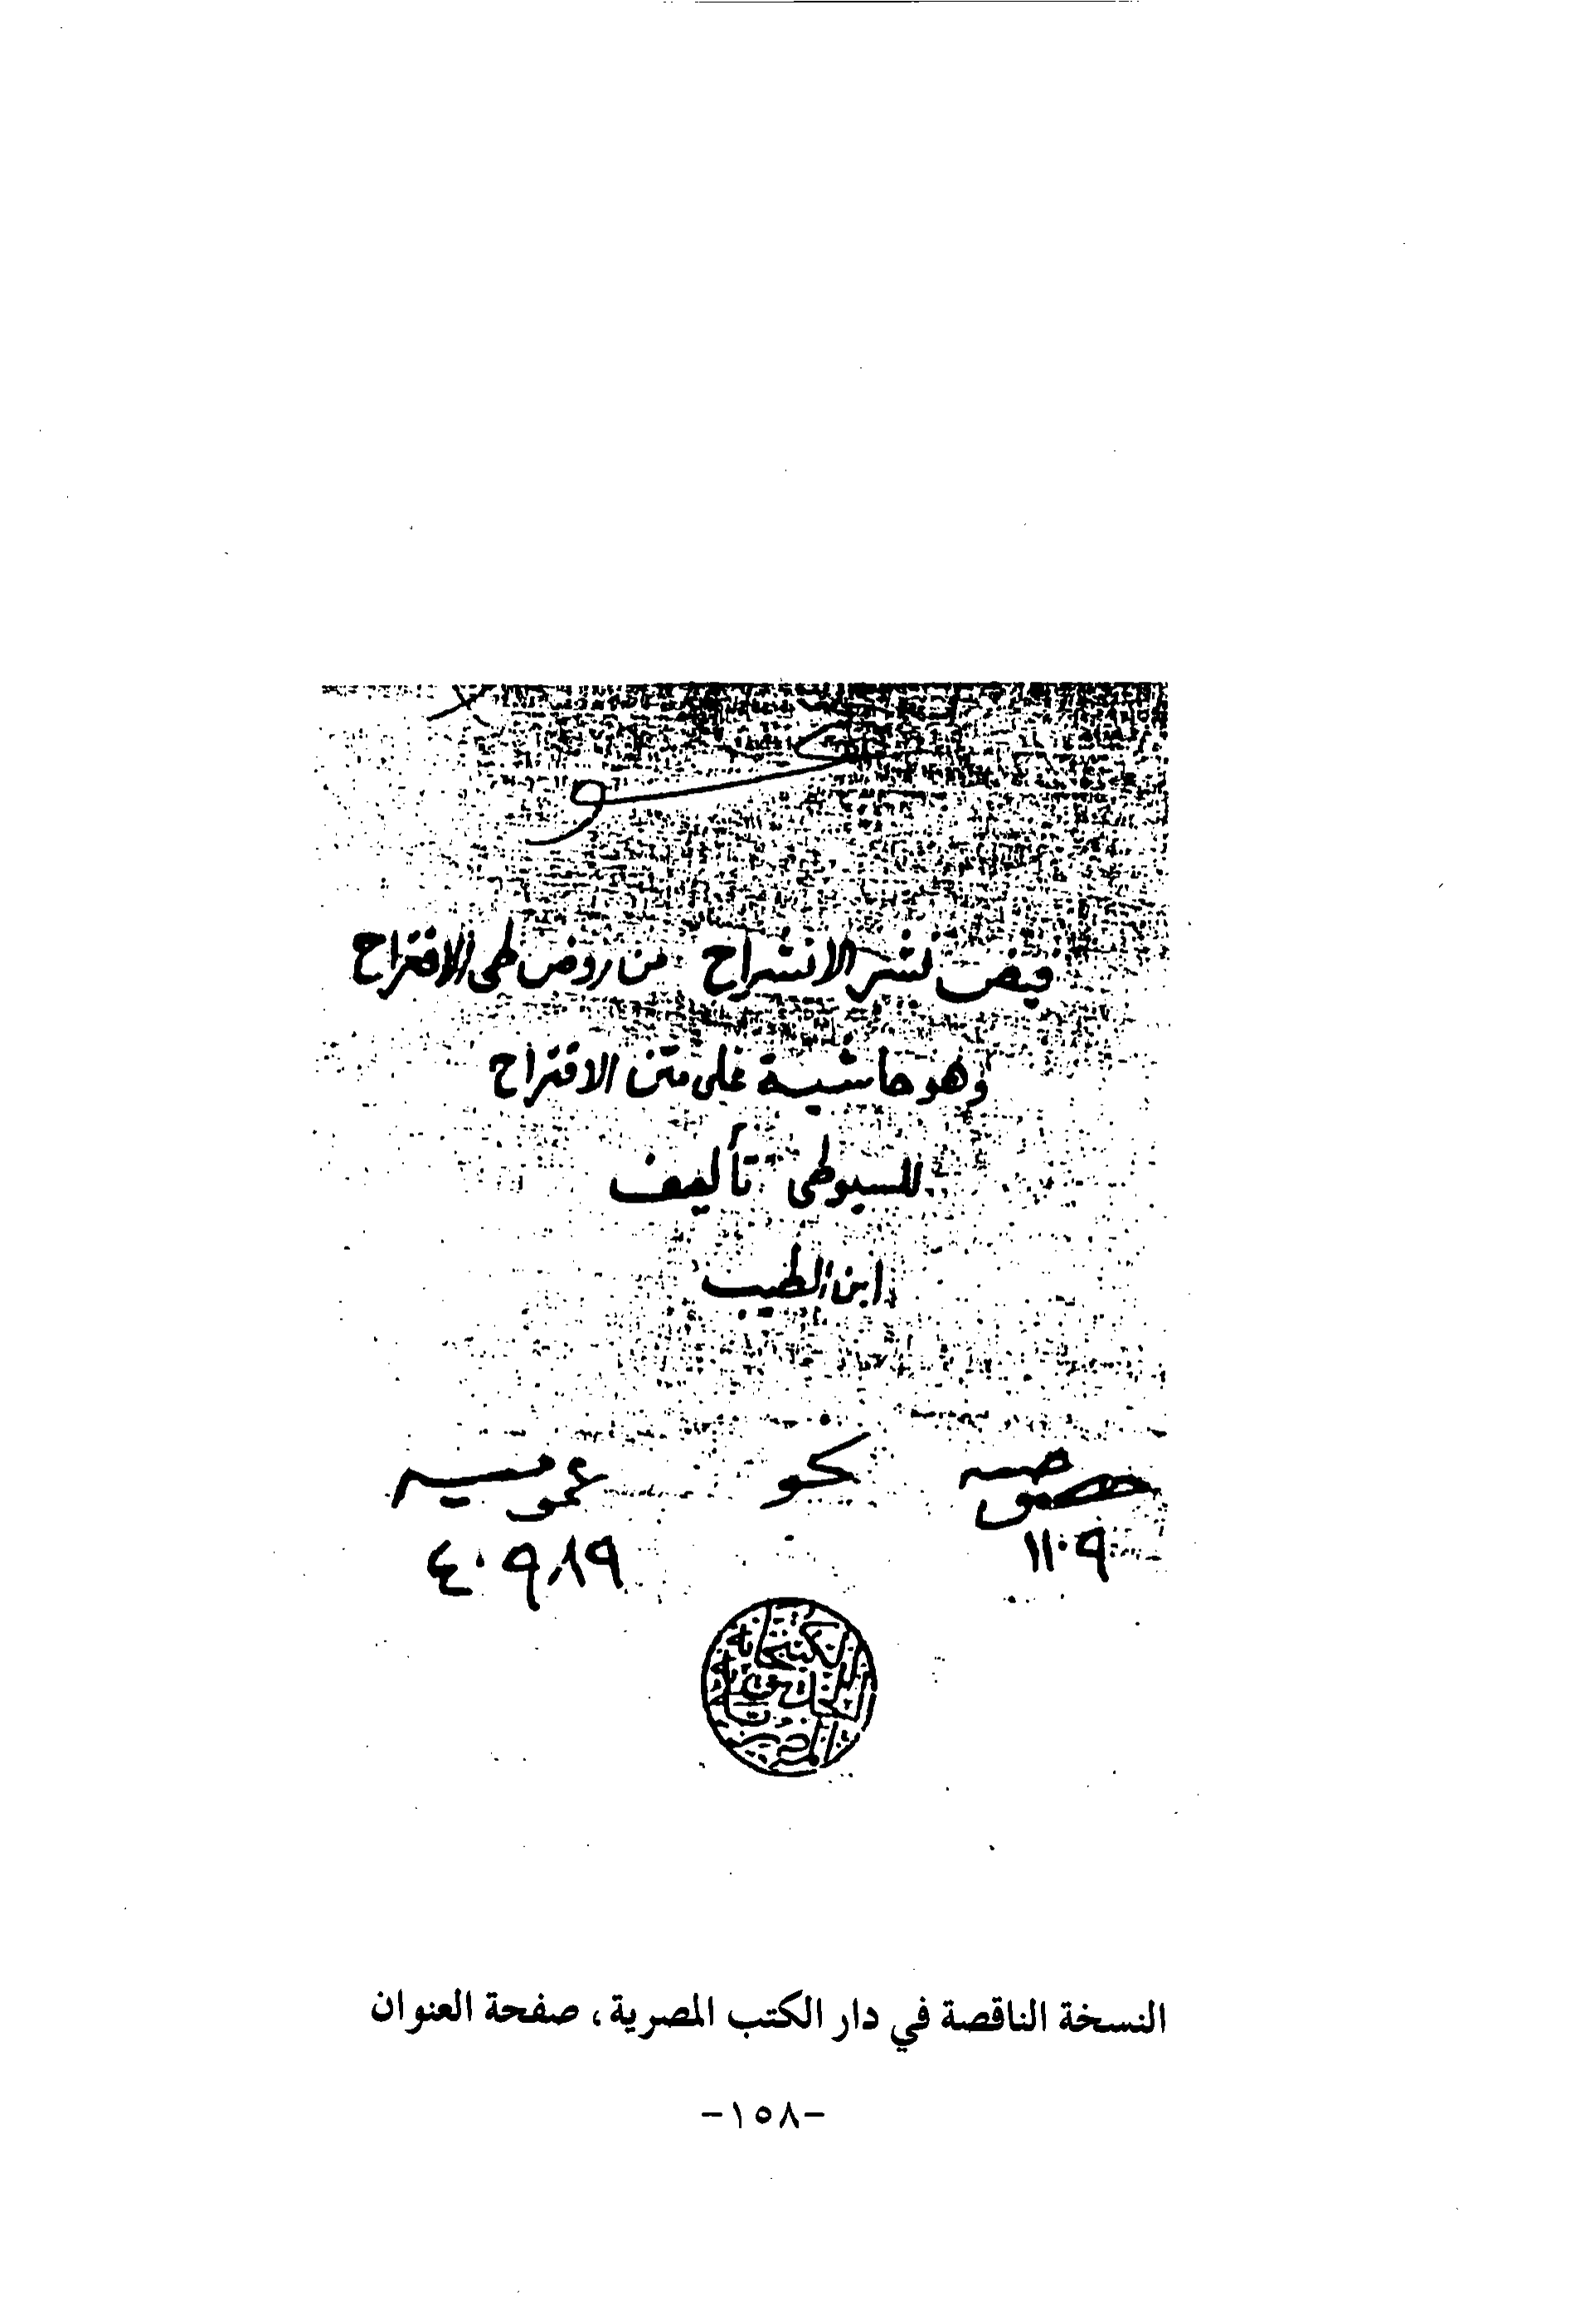 نحو
فيض نشر الانشراح من روض طى الاقتراح
وهو حاشية على متن الاقتراح
للسيوطى تأليف
ابن الطيب
خصوصيه نحو عموميه
١١٠٩ ٤٠٩٨٩
الكتبخانة
المصرية
النسخة الناقصة في دار الكتب المصرية، صفحة العنوان
-١٥٨-